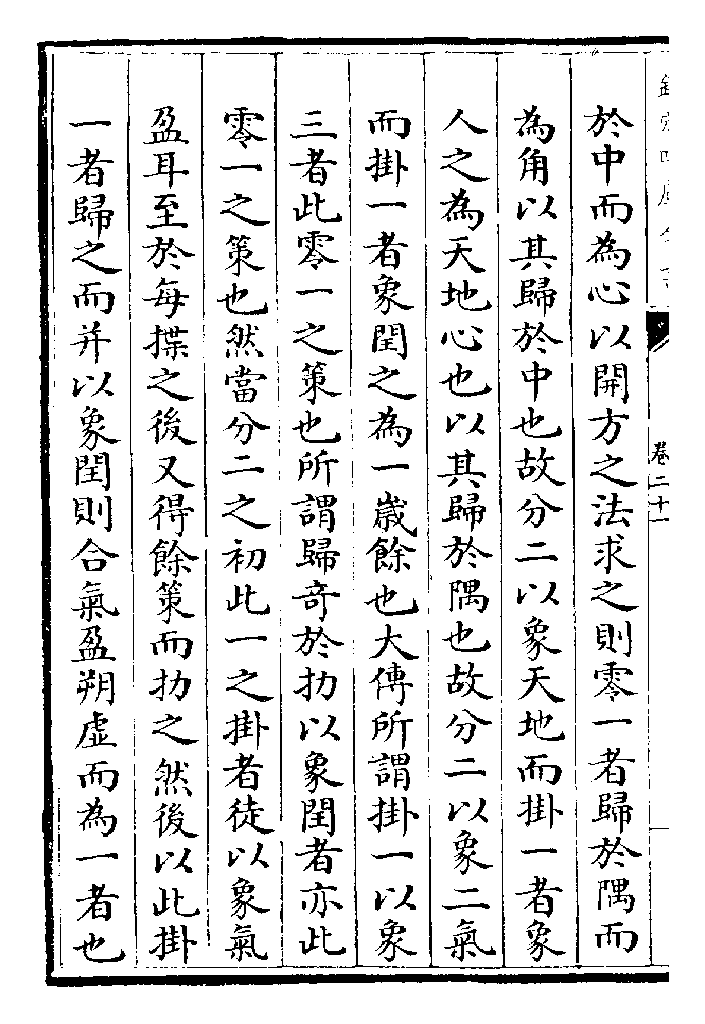 於中而為心以開方之法求之則零一者歸於隅而
為角以其歸於中也故分二以象天地而掛一者象
人之為天地心也以其歸於隅也故分二以象二氣
而掛一者象閏之為一歲餘也大傳所謂掛一以象
三者此零一之策也所謂歸奇於扐以象閏者亦此
零一之策也然當分二之初此一之掛者徒以象氣
盈耳至於每揲之後又得餘策而扐之然後以此掛
一者歸之而并以象閏則合氣盈朔虛而為一者也
卷二十一